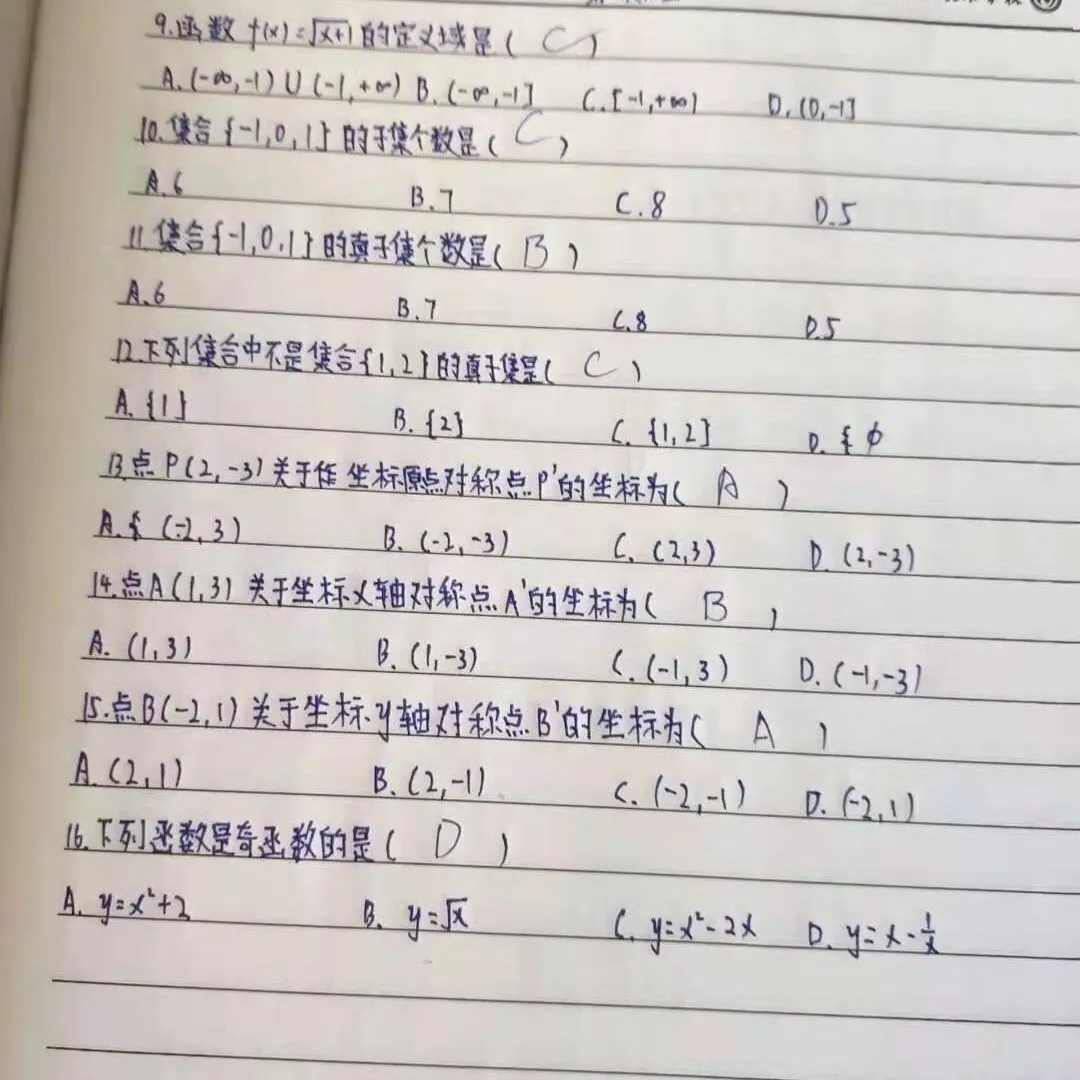 9.函数 f(x)=√x+1 的定义域是( C )
A.(-∞,-1)∪(-1,+∞) B.(-∞,-1] C.[-1,+∞) D.(0,-1]
10.集合{-1,0,1}的子集个数是( C )
A.6 B.7 C.8 D.5
11.集合{-1,0,1}的真子集个数是( B )
A.6 B.7 C.8 D.5
12.下列集合中不是集合{1,2}的真子集是( C )
A.{1} B.{2} C.{1,2} D.{ ∅
13.点P(2,-3)关于作 坐标原点对称点P'的坐标为( A )
A.{ (-2,3) B.(-2,-3) C.(2,3) D.(2,-3)
14.点A(1,3)关于坐标x轴对称点A'的坐标为( B )
A.(1,3) B.(1,-3) C.(-1,3) D.(-1,-3)
15.点B(-2,1)关于坐标y轴对称点B'的坐标为( A )
A.(2,1) B.(2,-1) C.(-2,-1) D.(-2,1)
16.下列函数是奇函数的是( D )
A. y=x²+2 B. y=√x C. y=x²-2x D. y=x-1/x